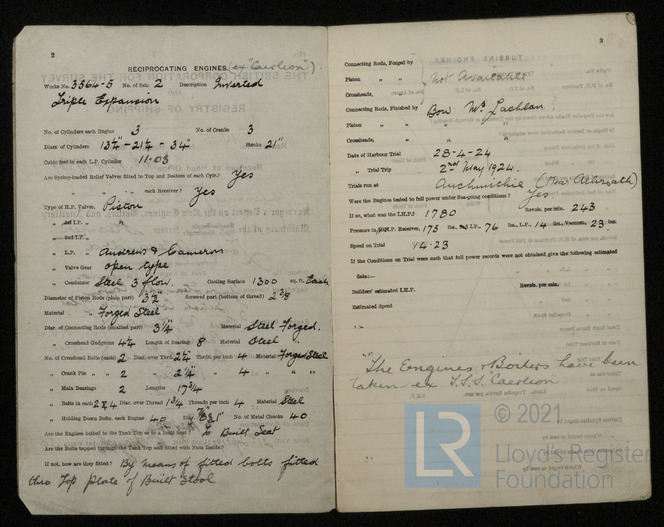 2
RECIPROCATING ENGINES. (ex "Caerleon")
Works No. 3564-5 No. of Sets 2 Description Inverted
Triple Expansion
No. of Cylinders each Engine 3 No. of Cranks 3
Diars. of Cylinders 13¼" - 21¼ - 34" Stroke 21"
Cubic feet in each L.P. Cylinder 11.03
Are Spring-loaded Relief Valves fitted to Top and Bottom of each Cyl.? Yes
„ „ „ each Receiver? Yes
Type of H.P. Valves, Piston
„ 1st I.P. „ „
„ 2nd I.P. „
„ L.P. „ Andrews & Cameron
„ Valve Gear open type
„ Condenser Steel 3 flow. Cooling Surface 1300 sq. ft. Each
Diameter of Piston Rods (plain part) Screwed part (bottom of thread) 2⅜
Material „ Forged Steel
Diar. of Connecting Rods (smallest part) 3¼" Material Steel Forged.
„ Crosshead Gudgeons 4¼ Length of Bearing 8 Material Steel
No. of Crosshead Bolts (each) 2 Diar. over Thrd. 2¼" Thrds. per inch 4 Material Forged Steel
„ Crank Pin „ 2 „ 2¼" „ 4 „ „
„ Main Bearings 2 Lengths 17¾
„ Bolts in each 2 & 4 Diar. over Thread 1¾ Threads per inch 4 Material Steel
„ Holding Down Bolts, each Engine 40 Diar. No. of Metal Chocks 40
Are the Engines bolted to the Tank Top or to a Built Seat? To Built Seat
Are the Bolts tapped through the Tank Top and fitted with Nuts Inside?
If not, how are they fitted? By means of fitted bolts fitted
thro Top plate of Built Stool
3
Connecting Rods, Forged by
Piston „ „ Not Available
Crossheads, „
Connecting Rods, Finished by Bow McLachlan
Piston „ „
Crossheads, „
Date of Harbour Trial 28-4-24
„ Trial Trip 2nd May 1924.
Trials run at
Were the Engines tested to full power under Sea-going conditions? Yes
If so, what was the I.H.P.? 1780 Revols. per min. 243
Pressure in 1st I.P. Receiver, 175 lbs., L.P., 14 lbs., Vacuum, 23 ins.
Speed on Trial 14.23
If the Conditions on Trial were such that full power records were not obtained give the following estimated
data:—
Builders' estimated I.H.P. Revols. per min.
Estimated Speed
"The Engines & Boilers have been
taken ex T.S.S. "Caerleon"
© 2021
LR
Lloyd's Register
Foundation